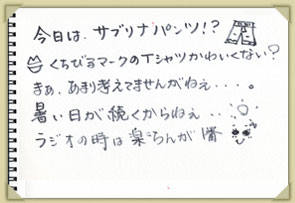 今日は、サブリナパンツ!?
くちびるマークのTシャツかわいくない?
まぁ、あまり考えてませんがねぇ....。
暑い日が続くからねぇ...
ラジオの時は楽ちんが一番